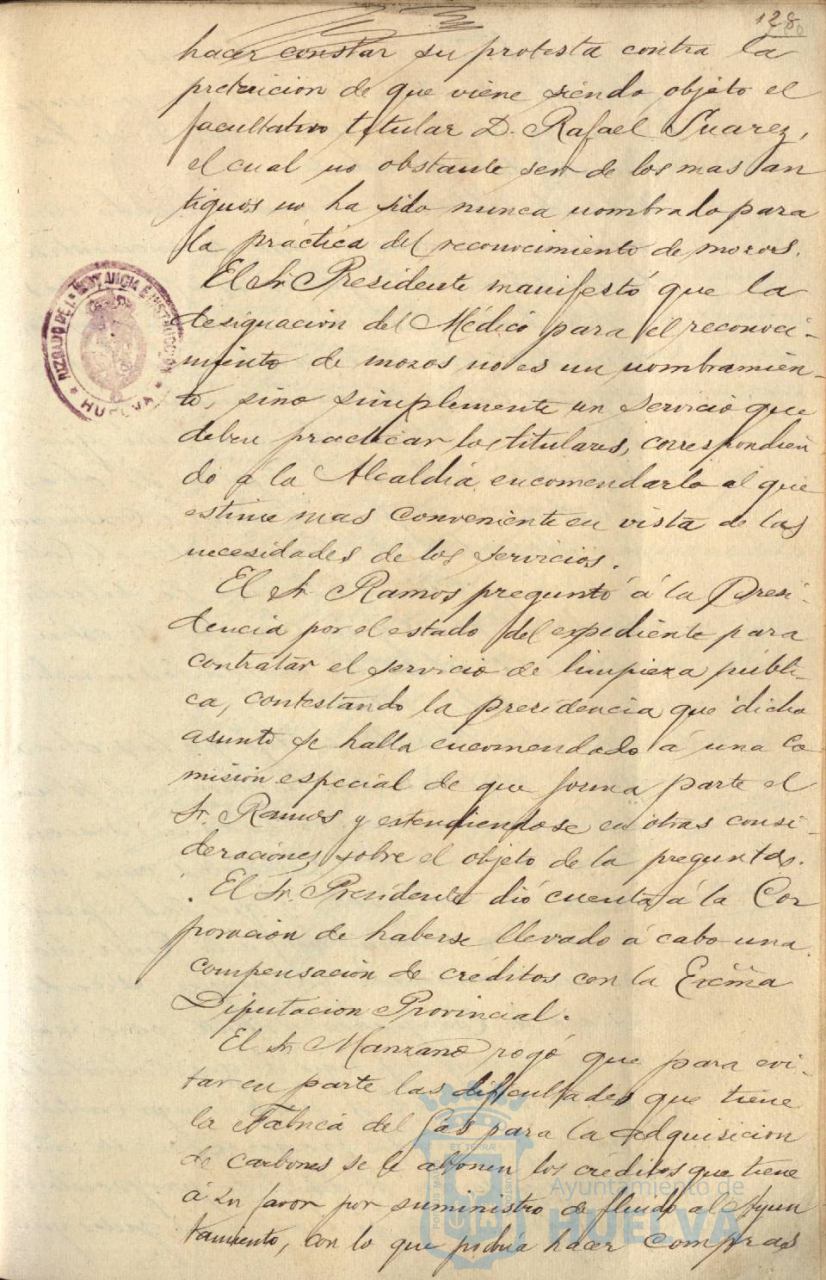 128
hacer constar su protesta contra la
pretericion de que viene siendo objeto el
facultativo titular D. Rafael Suarez,
el cual no obstante ser de los mas an
tiguos no ha sido nunca nombrado para
la práctica del reconocimiento de mozos.
El Sr. Presidente manifestó que la
designación del Médico para el reconoci-
miento de mozos no es un nombramien-
to, sino simplemente un servicio que
deben practicar los titulares, correspondien
do a la Alcaldía encomendarlo al que
estime mas conveniente en vista de las
necesidades de los servicios.
El Sr. Ramos preguntó á la Presi-
dencia por el estado del expediente para
contratar el servicio de limpieza públi-
ca, contestando la presidencia que dicho
asunto se halla encomendado á una co
misión especial de que forma parte el
Sr. Ramos y estendiendose en otras consi-
deraciones sobre el objeto de la pregunta.
El Sr. Presidente dió cuenta á la Cor
poración de haberse llevado á cabo una
compensación de créditos con la Excma
Diputacion Provincial.
El Sr. Manzano rogó que para evi-
tar en parte las dificultades que tiene
la Fabrica del Gas para la adquisicion
de carbones se le abonen los créditos que tiene
á su favor por suministro de fluido al Ayun
tamiento, con lo que podria hacer compras
JUZGADO DE 1ª INSTANCIA E INSTRUCCION
* HUELVA *
Ayuntamiento de
HUELVA